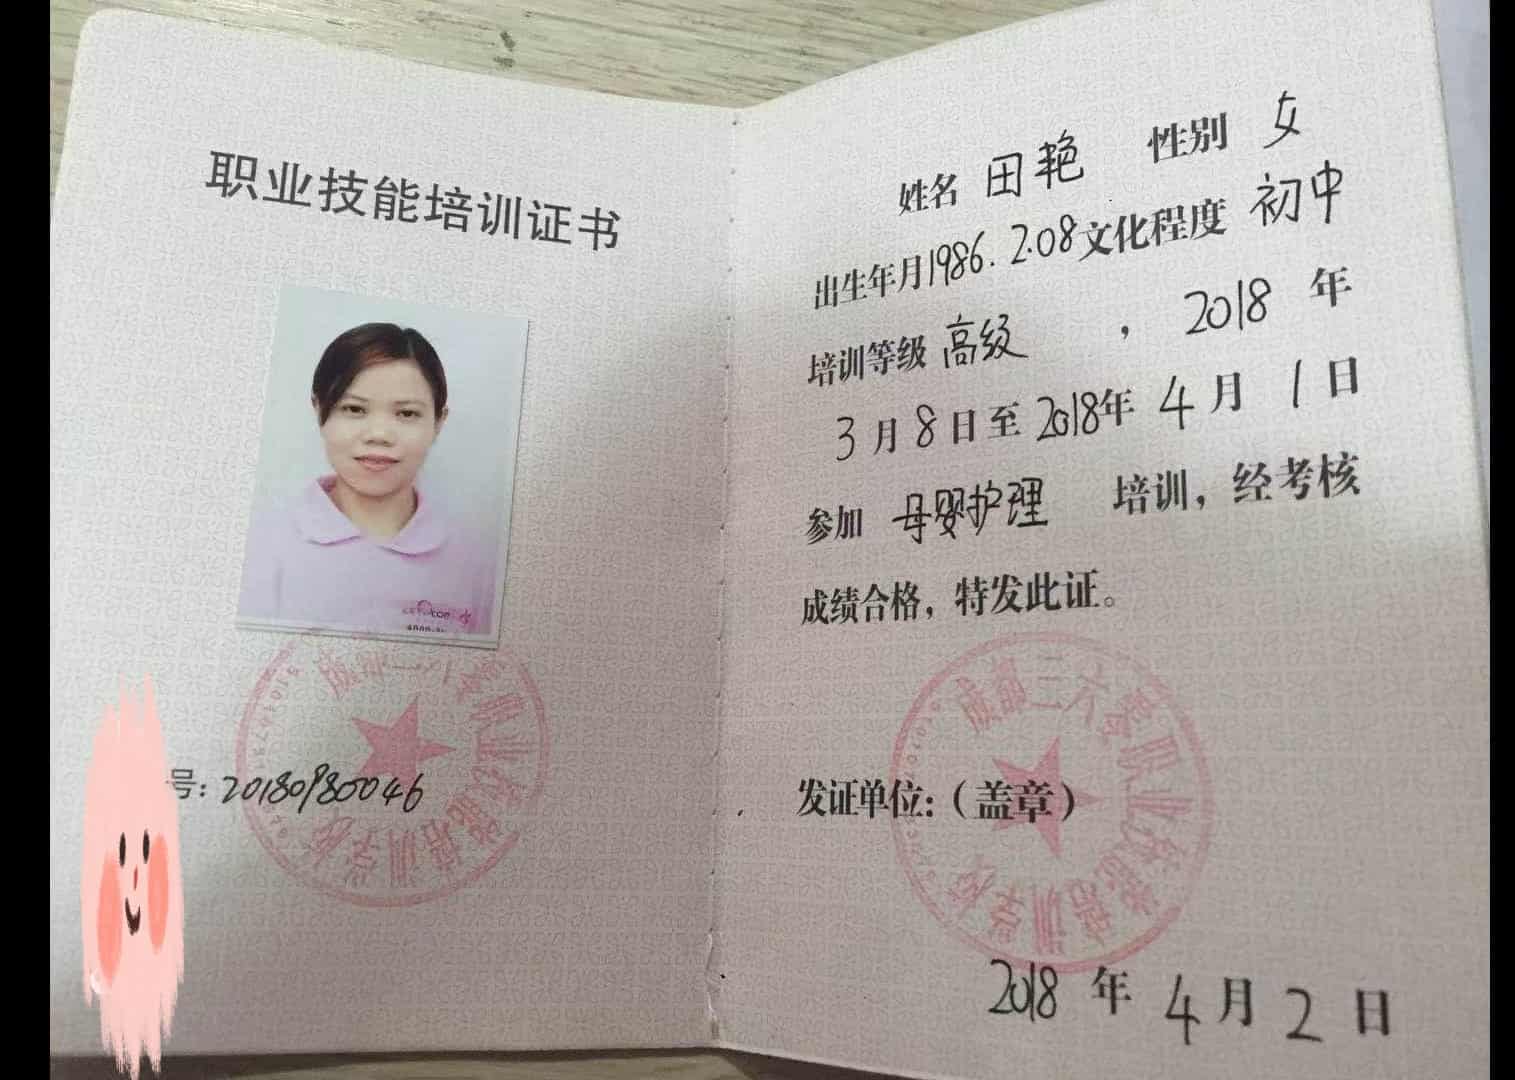 职业技能培训证书
号：20180980046
成都三六零职业技能培训学校
姓名 田艳 性别 女
出生年月1986.2.08文化程度 初中
培训等级 高级 ，2018 年
3 月 8 日 至 2018年 4 月 1 日
参加 母婴护理 培训，经考核
成绩合格，特发此证。
发证单位：（盖章）
成都三六零职业技能培训学校
2018 年 4 月 2 日